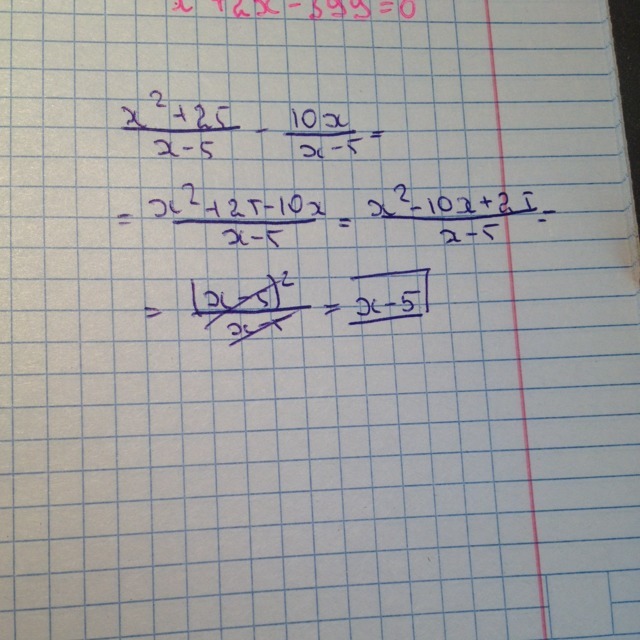 x² + 2x - 399 = 0
x² + 25 / x - 5 - 10x / x - 5 =
= x² + 25 - 10x / x - 5 = x² - 10x + 25 / x - 5 =
= (x - 5)² / x - 5 = x - 5